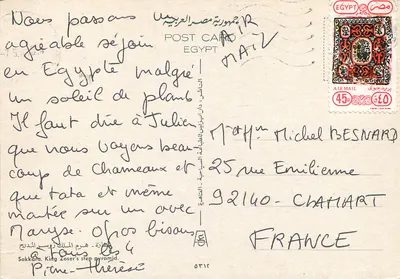 Nous passons
agréable séjour
en Egypte malgré
un soleil de plomb
Il faut dire à Julien
que nous voyons beau-
coup de Chameaux et
que tata et même
montée sur un avec
Maryse. Gros bisous
à tous les 4
Pierre-Thérèse
جمهورية مصر العربية
POST CARD
EGYPT
AIR
MAIL
EGYPT مصر
AIR MAIL بريد جوى
45 ٤٥
Mr et Mme Michel BESNARD
25 rue Emilienne
92140 - CLAMART
FRANCE
Sakkara. King Zoser's step pyramid.
٥٣١٢